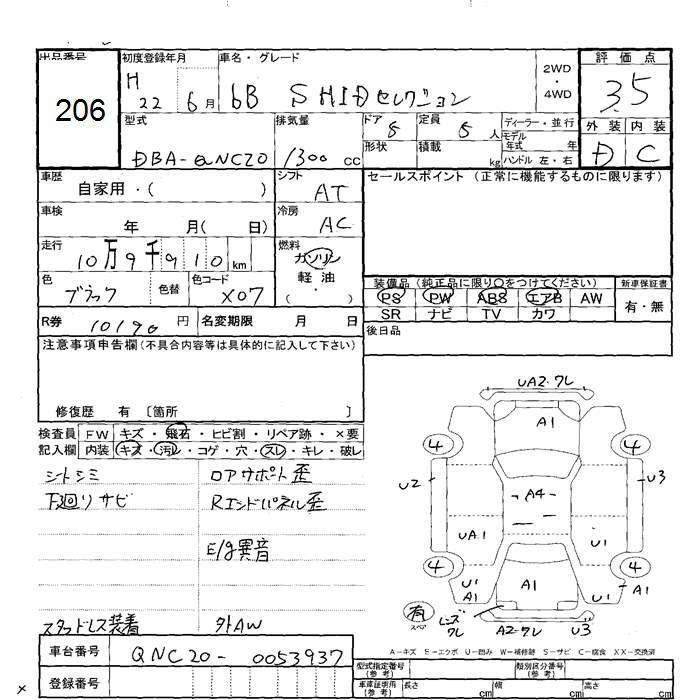 出品番号 初度登録年月 車名・グレード 2WD 評価点
206 H 22 6月 bB S HIDセレクション 4WD 3.5
型式 排気量 ドア 定員 ディーラー・並行 外装 内装
DBA-QNC20 1300 cc 5 5 人 モデル年式 年 D C
形状 積載 kg ハンドル 左・右
車歴 自家用・( ) シフト AT セールスポイント (正常に機能するものに限ります)
車検 年 月( 日) 冷房 AC
走行 10万9千910km 燃料 ガソリン
軽油
( ・ )
色 ブラック 色替 色コード X07
装備品 (純正品に限り○をつけてください) 新車保証書
PS PW ABS エアB AW 有・無
SR ナビ TV カワ
R券 10190 円 名変期限 月 日 後日品
注意事項申告欄(不具合内容等は具体的に記入して下さい)
修復歴 有 〔箇所 〕
検査員 FW キズ・飛石・ヒビ割・リペア跡・×要
記入欄 内装 キズ・汚レ・コゲ・穴・スレ・キレ・破レ
シートシミ ロアサポート歪
下廻リサビ Rエンドパネル歪
E/g異音
スタッドレス装着 外AW
UA2・ワレ
A1
4 4
U2 U3
A4
UA1 U1
4 4
U1 A1 A1 U1 A1
有 スペア レンズワレ A2・ワレ U3
A-キズ E-エクボ U-凹み W-補修跡 S-サビ C-腐食 XX-交換済
車台番号 QNC20-0053937
型式指定番号(参考) 類別区分番号(参考)
登録番号 車庫証明用(参考) 長さ cm 幅 cm 高さ cm